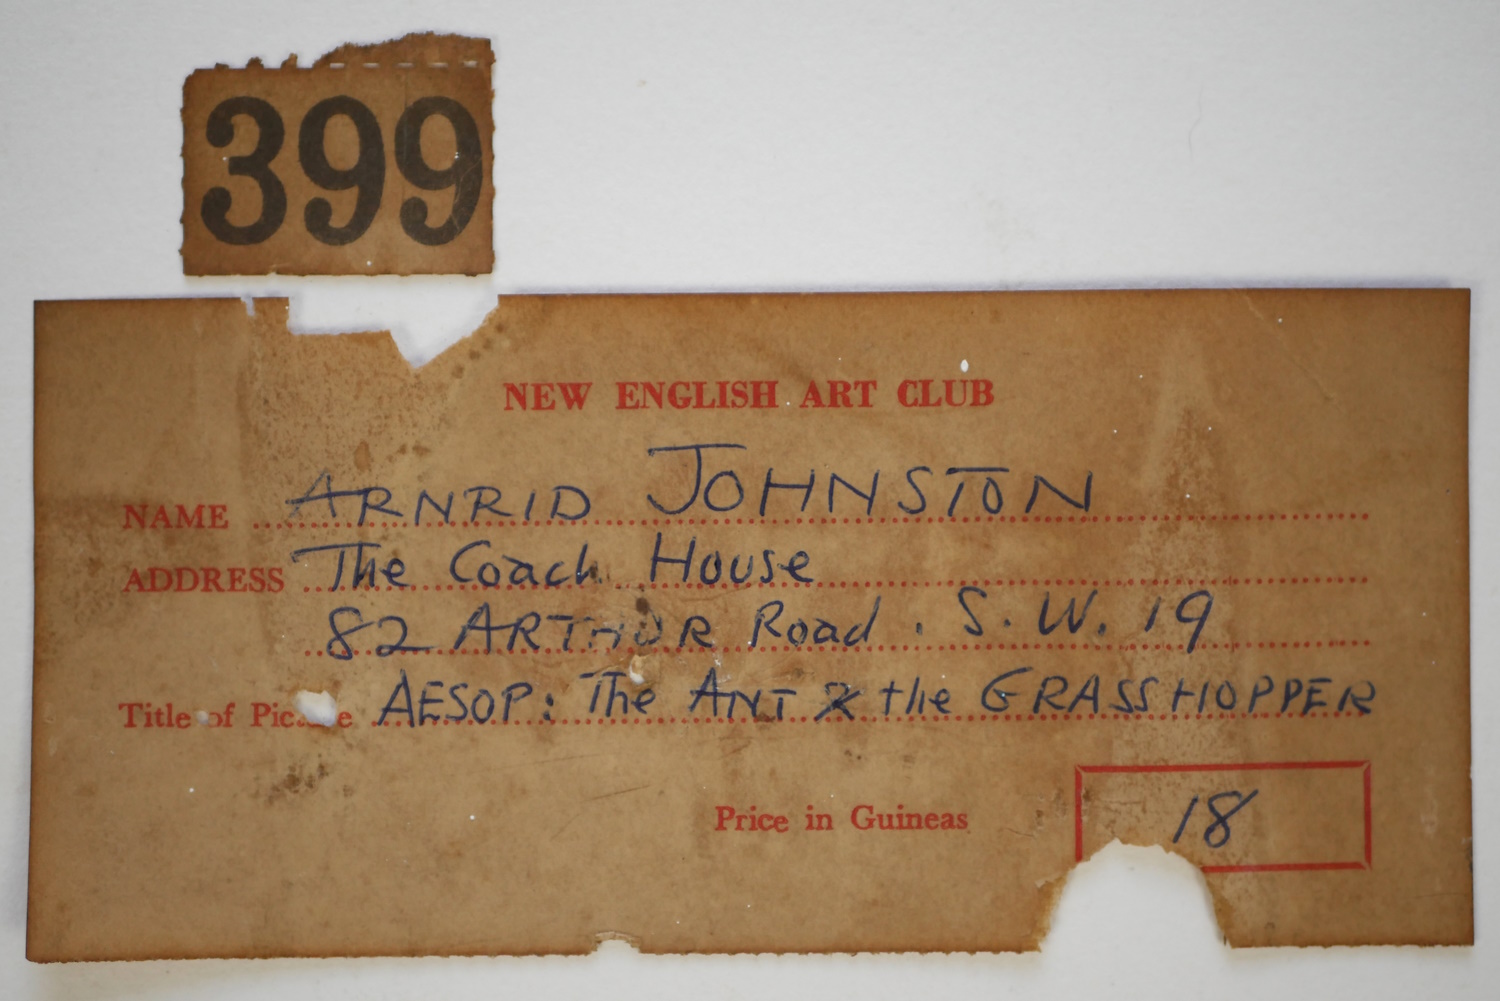 399
NEW ENGLISH ART CLUB
NAME ARNRID JOHNSTON
ADDRESS The Coach House
82 ARTHUR Road. S.W. 19
Title of Picture AESOP: The ANT & the GRASSHOPPER
Price in Guineas 18